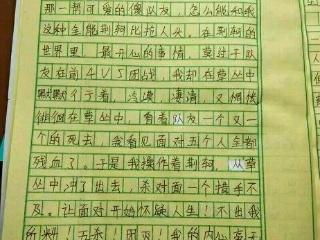 那一帮可爱的傻队友，怎么能和我
这种全能荆轲比拉人头。在荆轲的
世界里，最开心的事情，莫过于队
友在前4V5团战，我却在草丛中
默默个于着，凌凑，凄清，又惆怅
徘徊在草丛中，看着队友一个又一
个的死去，我看见面对五个人全都
残血了。于是我操作着荆轲，从草
丛中冲了出去，杀对面一个措手不
及。让面对开始怀疑人生！不出我
所料，五杀！团灭！我的内心高于